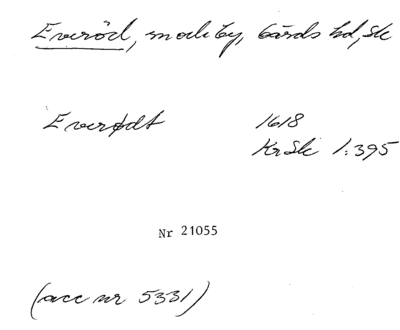 Everöd, modeby, Gärds hd, Sk
Everødt 1618
KrSk 1:395
Nr 21055
(acc nr 5331)